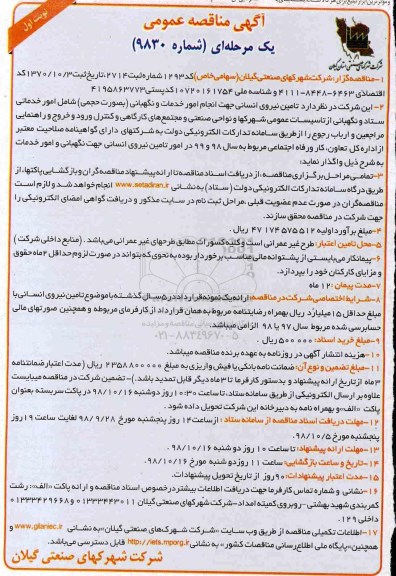 نوبت اول
آگهی مناقصه عمومی
یک مرحله‌ای (شماره ۹۸۳۰)
۱-مناقصه‌گزار: شرکت شهرکهای صنعتی گیلان (سهامی خاص) کد ۱۲۹۳ شماره ثبت: ۲۷۱۴، تاریخ ثبت ۱۳۷۰/۱۰/۳ کد
اقتصادی ۶۴۶۳-۸۴۴۸-۴۱۱۱ و شناسه ملی ۱۰۷۲۰۱۶۱۷۵۴ کدپستی ۴۱۹۵۸۶۳۷۷۳
۲- این شرکت در نظر دارد تامین نیروی انسانی جهت انجام امور خدمات و نگهبانی (بصورت حجمی) شامل امور خدماتی
ستاد و نگهبانی از تاسیسات عمومی شهرکها و نواحی صنعتی و مجتمع‌های کارگاهی و کنترل ورود و خروج و راهنمایی
مراجعین و ارباب رجوع را از طریق سامانه تدارکات الکترونیکی دولت به شرکتهای دارای گواهینامه صلاحیت معتبر
از اداره کل تعاون، کار و رفاه اجتماعی مربوط به سال ۹۸ و ۹۹ در امور تامین نیروی انسانی جهت نگهبانی و امور خدمات
به شرح ذیل واگذار نماید:
۳-تمامی مراحل برگزاری مناقصه، از دریافت اسناد مناقصه تا ارائه پیشنهاد مناقصه‌گران و بازگشایی پاکتها، از
طریق درگاه سامانه تدارکات الکترونیکی دولت (ستاد) به نشانی www.setadiran.ir انجام خواهد شد و لازم است
مناقصه‌گران در صورت عدم عضویت قبلی، مراحل ثبت نام در سایت مذکور و دریافت گواهی امضای الکترونیکی را
جهت شرکت در مناقصه محقق سازند.
۴-مبلغ برآورد اولیه ۴۷۱۷۴۵۷۵۵۱۲ ریال.
۵-محل تامین اعتبار: طرح غیر عمرانی است و کلیه کسورات مطابق طرحهای غیر عمرانی می‌باشد. (منابع داخلی شرکت)
۶-پیمانکار می‌بایستی از پشتوانه مالی مناسب برخوردار بوده به نحوی که بتواند در صورت لزوم حداقل ۲ ماه حقوق
و مزایای کارکنان خود را بپردازد.
۷-مدت پیمان: ۱۲ ماه
۸-شرایط اختصاصی شرکت در مناقصه: ارائه یک نمونه قرارداد در ۵ سال گذشته با موضوع تامین نیروی انسانی با
مبلغ حداقل ۱۵ میلیارد ریال بهمراه رضایتنامه مربوط به همان قرارداد از کارفرمای مربوطه و همچنین صورتهای مالی
حسابرسی شده مربوط سال ۹۷ یا ۹۸ الزامی میباشد.
۹-مبلغ خرید اسناد: ۵۰۰۰۰۰ ریال.
۱۰-هزینه انتشار آگهی در روزنامه به عهده برنده مناقصه میباشد.
۱۱-مبلغ تضمین و نوع آن: ضمانت نامه بانکی یا فیش واریزی به مبلغ ۲۳۵۸۸۰۰۰۰۰ ریال (مدت اعتبار ضمانتنامه
۳ ماه از تاریخ ارائه پیشنهاد و بدستور کارفرما تا ۳ ماه دیگر قابل تمدید باشد.)- تضمین شرکت در مناقصه میبایست
علاوه بر ارسال الکترونیکی از طریق سامانه ستاد، تا ساعت ۱۰:۳۰ روز دوشنبه ۹۸/۱۰/۱۶ در پاکت سربسته بعنوان
پاکت «الف» و بهمراه نامه به دبیرخانه این شرکت تحویل داده شود.
۱۲-مهلت دریافت اسناد مناقصه از سامانه ستاد: از ساعت ۱۴ روز پنجشنبه مورخ ۹۸/۹/۲۸ لغایت ساعت ۱۹ روز
پنجشنبه مورخ ۹۸/۱۰/۵.
۱۳-مهلت ارائه پیشنهاد: تا ساعت ۱۰ روز دو شنبه مورخ ۹۸/۱۰/۱۶.
۱۴-تاریخ و ساعت بازگشایی: ساعت ۱۱ روز دو شنبه مورخ ۹۸/۱۰/۱۶.
۱۵-مدت اعتبار پیشنهادات: ۹۰ روز از تاریخ تحویل پیشنهادات.
۱۶-نشانی و شماره تماس کارفرما جهت دریافت اطلاعات بیشتر در خصوص اسناد مناقصه و ارائه پاکت «الف»: رشت
کمربندی شهید بهشتی-روبروی کمیته امداد-شرکت شهرکهای صنعتی گیلان ۰۱۳۳۳۴۴۳۰۱۱ و ۰۱۳۳۳۴۲۹۶۶۸
داخلی ۱۲۹.
۱۷-اطلاعات تکمیلی مناقصه از طریق وب سایت «شرکت شهرک‌های صنعتی گیلان» به نشانی www.gilaniec.ir و
همچنین «پایگاه ملی اطلاع رسانی مناقصات کشور» به نشانی http://iets.mporg.ir قابل دسترسی می‌باشد.
شرکت شهرکهای صنعتی گیلان